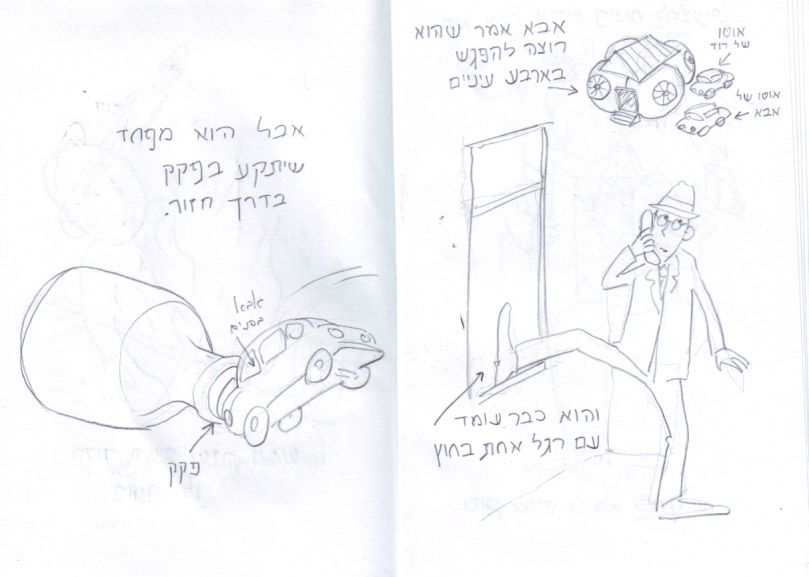 אבא אמר שהוא
רוצה להפגש
בארבע עיניים
אוטו
של דוד
אוטו של
אבא
והוא כבר עומד
עם רגל אחת בחוץ
אבל הוא מפחד
שיתקע בפקק
בדרך חזור.
אבא
בפנים
פקק